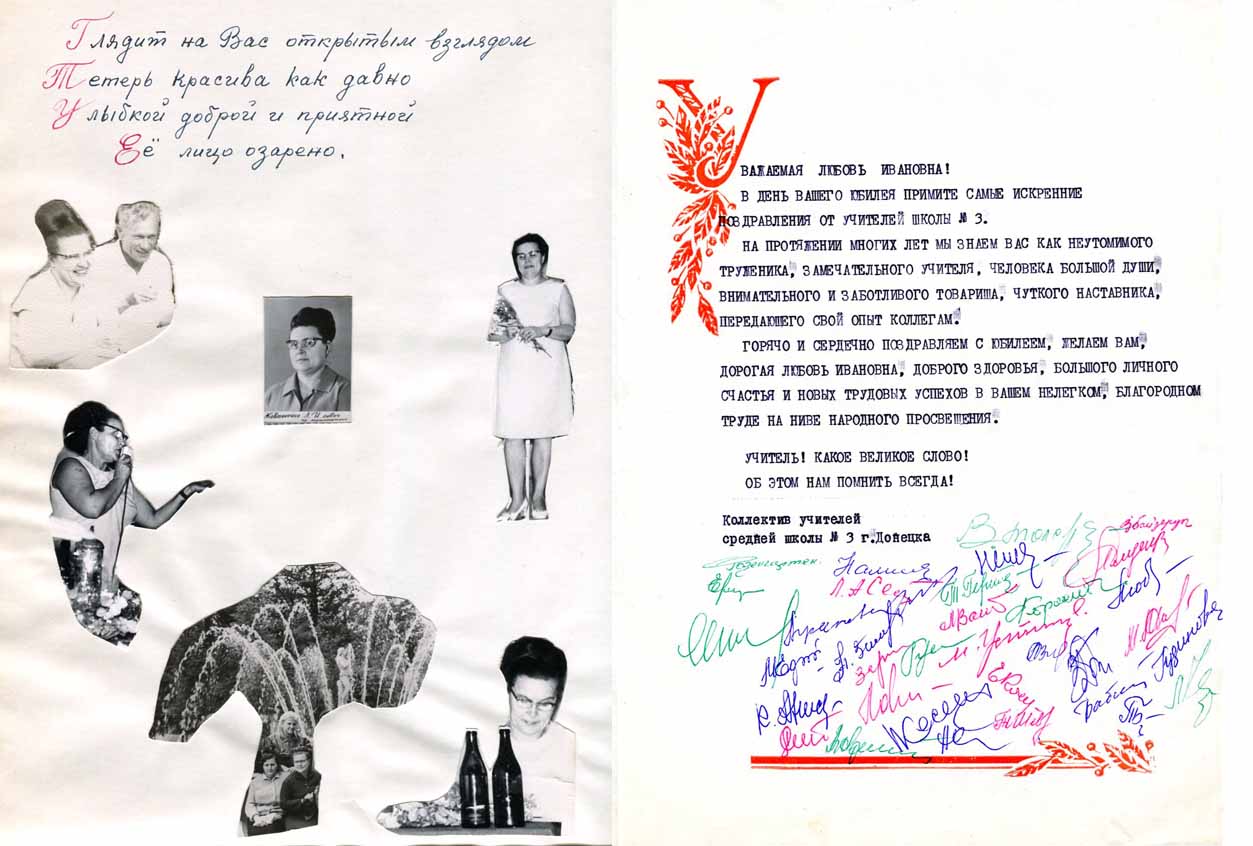 Глядит на Вас открытым взглядом
Теперь красива как давно
Улыбкой доброй и приятной
Её лицо озарено.
УВАЖАЕМАЯ ЛЮБОВЬ ИВАНОВНА!
В ДЕНЬ ВАШЕГО ЮБИЛЕЯ ПРИМИТЕ САМЫЕ ИСКРЕННИЕ
ПОЗДРАВЛЕНИЯ ОТ УЧИТЕЛЕЙ ШКОЛЫ № 3.
НА ПРОТЯЖЕНИИ МНОГИХ ЛЕТ МЫ ЗНАЕМ ВАС КАК НЕУТОМИМОГО
ТРУЖЕНИКА, ЗАМЕЧАТЕЛЬНОГО УЧИТЕЛЯ, ЧЕЛОВЕКА БОЛЬШОЙ ДУШИ,
ВНИМАТЕЛЬНОГО И ЗАБОТЛИВОГО ТОВАРИЩА, ЧУТКОГО НАСТАВНИКА,
ПЕРЕДАЮЩЕГО СВОЙ ОПЫТ КОЛЛЕГАМ.
ГОРЯЧО И СЕРДЕЧНО ПОЗДРАВЛЯЕМ С ЮБИЛЕЕМ, ЖЕЛАЕМ ВАМ,
ДОРОГАЯ ЛЮБОВЬ ИВАНОВНА, ДОБРОГО ЗДОРОВЬЯ, БОЛЬШОГО ЛИЧНОГО
СЧАСТЬЯ И НОВЫХ ТРУДОВЫХ УСПЕХОВ В ВАШЕМ НЕЛЕГКОМ, БЛАГОРОДНОМ
ТРУДЕ НА НИВЕ НАРОДНОГО ПРОСВЕЩЕНИЯ.
УЧИТЕЛЬ! КАКОЕ ВЕЛИКОЕ СЛОВО!
ОБ ЭТОМ НАМ ПОМНИТЬ ВСЕГДА!
Коллектив учителей
средней школы № 3 г.Донецка